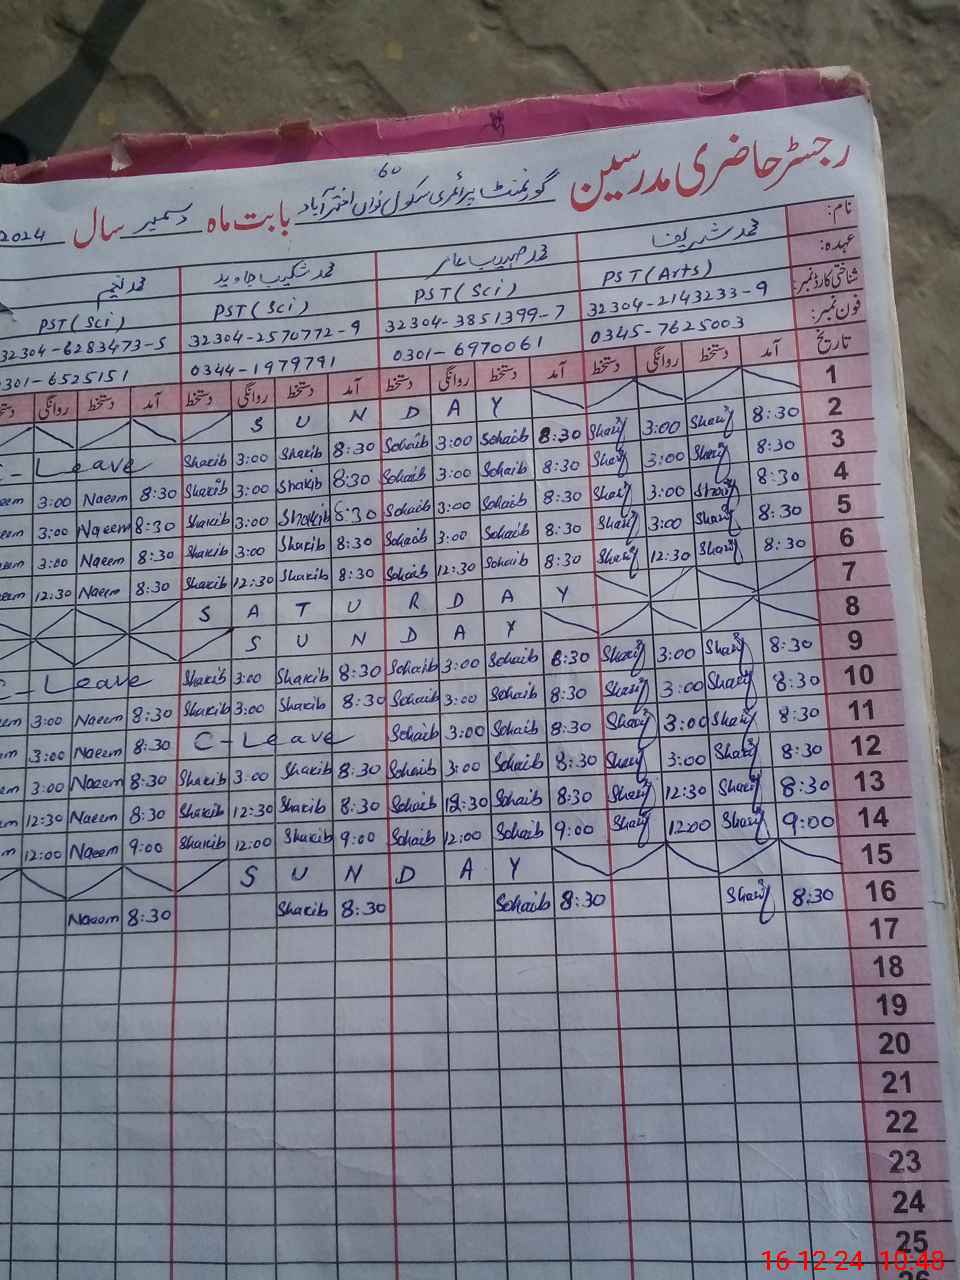 رجسٹر حاضری مدرسین گورنمنٹ پرائمری سکول نواں اختر آباد بابت ماہ دسمبر سال 2024
60
نام: محمد شریف محمد صہیب عامر محمد شکیب جاوید محمد نعیم
عہدہ: PST (Arts) PST (Sci) PST (Sci) PST (Sci)
شناختی کارڈ نمبر: 32304-2143233-9 32304-3851399-7 32304-2570772-9 32304-6283473-5
فون نمبر: 0345-7625003 0301-6970061 0344-1979791 0301-6525151
تاریخ آمد دستخط روانگی دستخط آمد دستخط روانگی دستخط آمد دستخط روانگی دستخط آمد دستخط روانگی
1 SUNDAY
2 8:30 Sharif 3:00 Sharif 8:30 Sohaib 3:00 Sohaib 8:30 Shakib 3:00 Shakib C-Leave
3 8:30 Sharif 3:00 Sharif 8:30 Sohaib 3:00 Sohaib 8:30 Shakib 3:00 Shakib 8:30 Naeem 3:00 eem
4 8:30 Sharif 3:00 Sharif 8:30 Sohaib 3:00 Sohaib 8:30 Shakib 3:00 Shakib 8:30 Naeem 3:00 eem
5 8:30 Sharif 3:00 Sharif 8:30 Sohaib 3:00 Sohaib 8:30 Shakib 3:00 Shakib 8:30 Naeem 3:00 eem
6 8:30 Sharif 12:30 Sharif 8:30 Sohaib 12:30 Sohaib 8:30 Shakib 12:30 Shakib 8:30 Naeem 12:30 em
7 SATURDAY
8 SUNDAY
9 8:30 Sharif 3:00 Sharif 8:30 Sohaib 3:00 Sohaib 8:30 Shakib 3:00 Shakib C-Leave
10 8:30 Sharif 3:00 Sharif 8:30 Sohaib 3:00 Sohaib 8:30 Shakib 3:00 Shakib 8:30 Naeem 3:00 em
11 8:30 Sharif 3:00 Sharif 8:30 Sohaib 3:00 Sohaib C-Leave 8:30 Naeem 3:00 m
12 8:30 Sharif 3:00 Sharif 8:30 Sohaib 3:00 Sohaib 8:30 Shakib 3:00 Shakib 8:30 Naeem 3:00 em
13 8:30 Sharif 12:30 Sharif 8:30 Sohaib 12:30 Sohaib 8:30 Shakib 12:30 Shakib 8:30 Naeem 12:30 m
14 9:00 Sharif 12:00 Sharif 9:00 Sohaib 12:00 Sohaib 9:00 Shakib 12:00 Shakib 9:00 Naeem 12:00 m
15 SUNDAY
16 8:30 Sharif 8:30 Sohaib 8:30 Shakib 8:30 Naeem
17
18
19
20
21
22
23
24
25
16-12-24 10:48